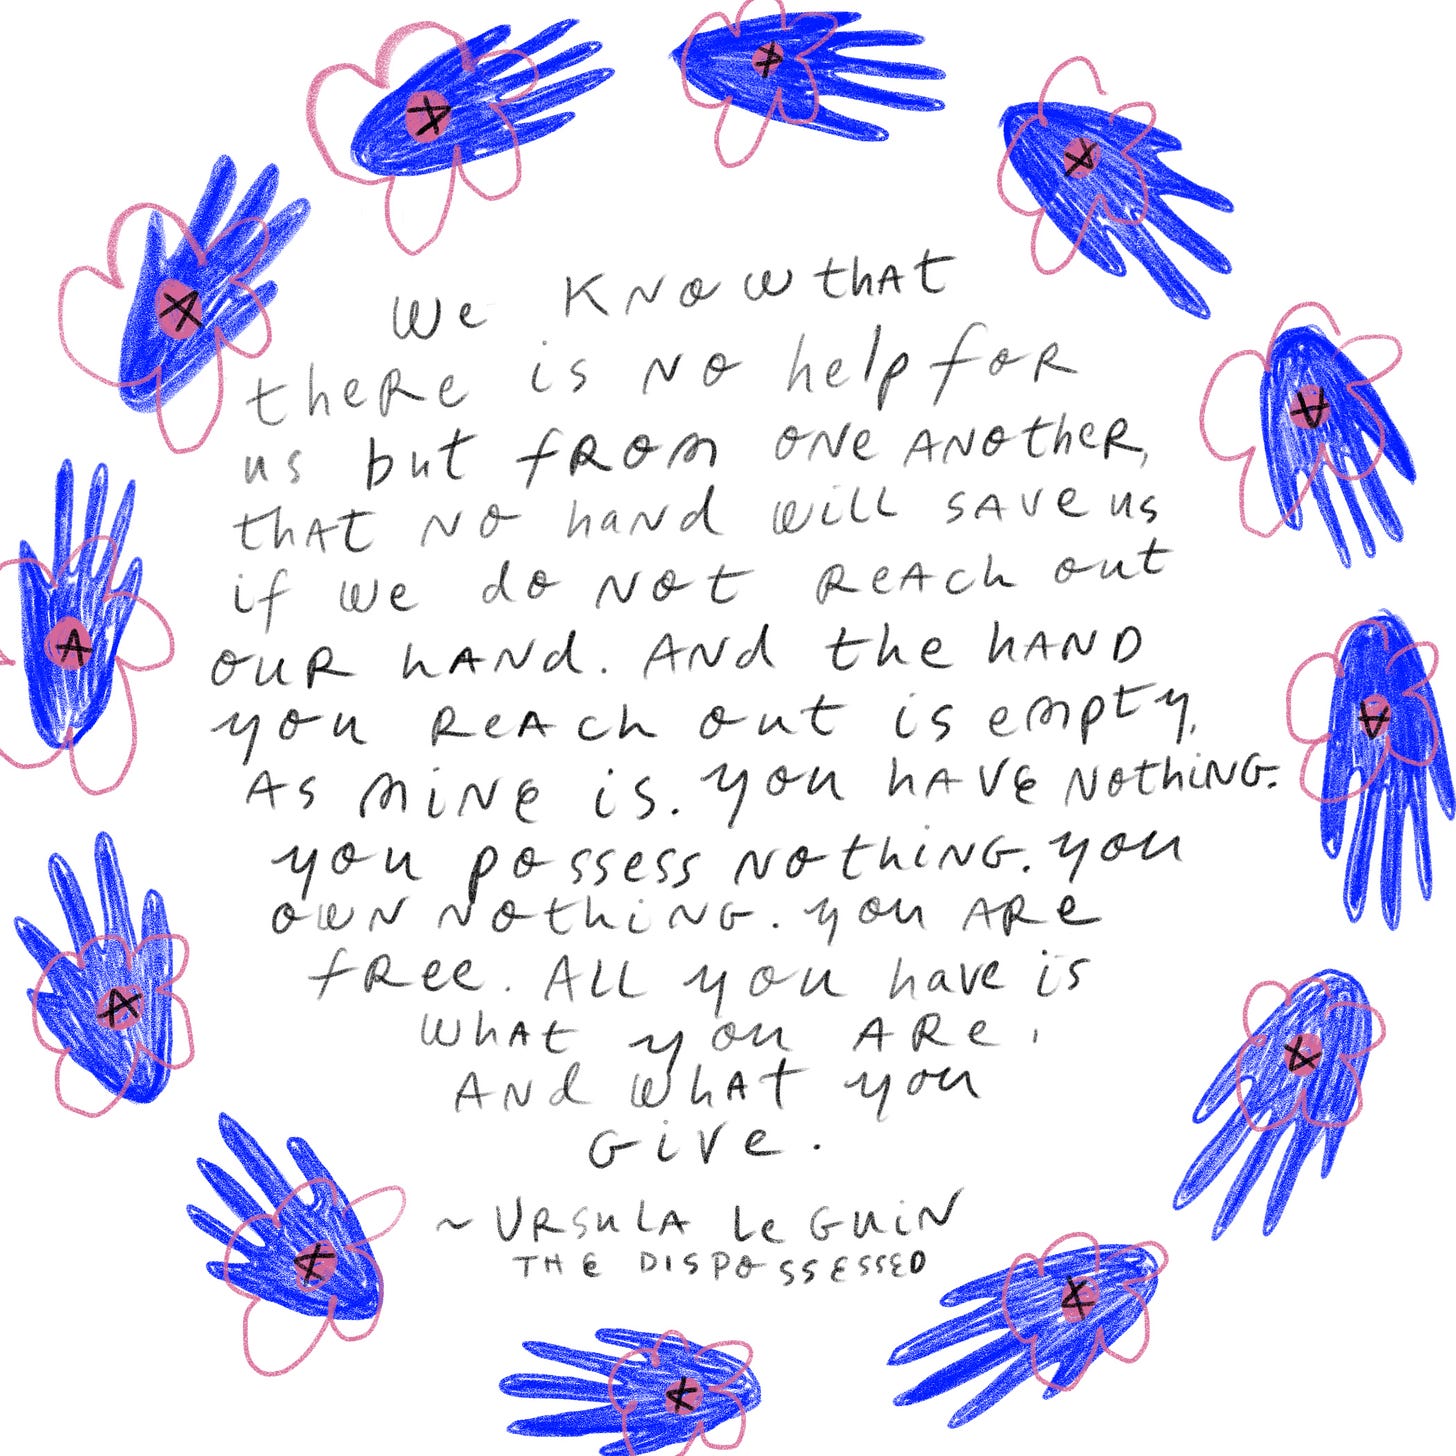 We KNow thAt
theRe is No help foR
us but fRom oNe ANotheR,
thAt No haNd will sAve us
if we do Not ReAch out
ouR hANd. ANd the hAND
you ReAch out is empty,
As miNe is. you hAVe NothiNG.
you possess NothiNG. you
owN NothiNG. you ARe
fRee. All you have is
whAt you ARe,
ANd whAt you
Give.
~ URsuLA Le GuiN
THe DISPoSSESSED
A
A
A
A
A
A
A
A
A
A
A
A
A